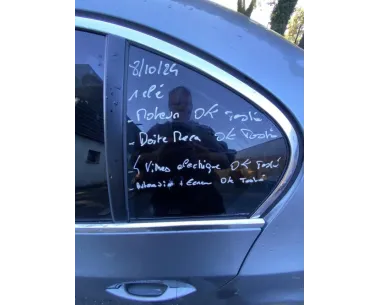 8/10/24
1 clé
- Moteur OK Testé
- Boite Meca OK Testé
4 Vitres electrique OK Testé
- OK Testé